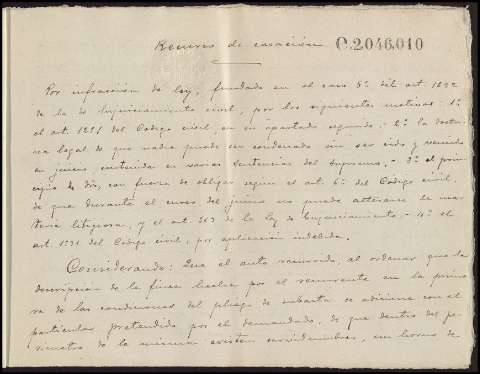 Recurso de casación C.2.046,010
Por infracción de ley, fundado en el caso 5º del art 1692
de la de Enjuiciamiento civil, por los siguientes motivos: 1º
el art. 1251 del Código civil, en su apartado segundo. - 2º la doctri-
na legal de que nadie puede ser condenado sin ser oido y vencido
en juicio, contenida en varias sentencias del Supremo. - 3º el prin-
cipio de dro, con fuerza de obligar segun el art. 6º del Código civil,
de que durante el curso del juicio no puede alterarse la ma-
teria litigiosa, y el art. 362 de la ley de Enjuiciamiento - 4º el
art 1571 del Código civil, por aplicación indebida.
Considerando: Que el auto recurrido, al ordenar que la
descripción de la finca hecha por el recurrente en la prime-
ra de las condiciones del pliego de subasta se adicione con el
particular pretendido por el demandado, de que dentro del pe-
rimetro de la misma existen servidumbres, un horno de